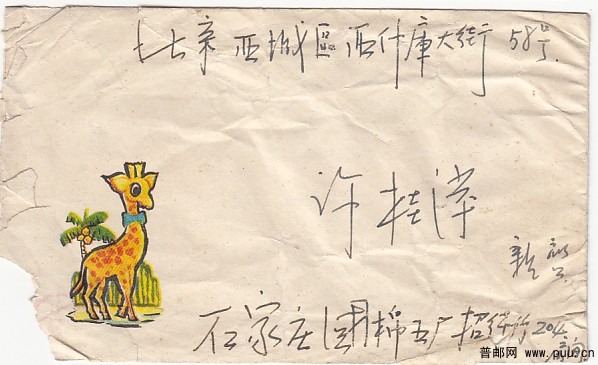 北京西城區西什庫大街 58号
许桂
亲启
石家庄国棉五厂招待所 204
普邮网 www.puu.cn